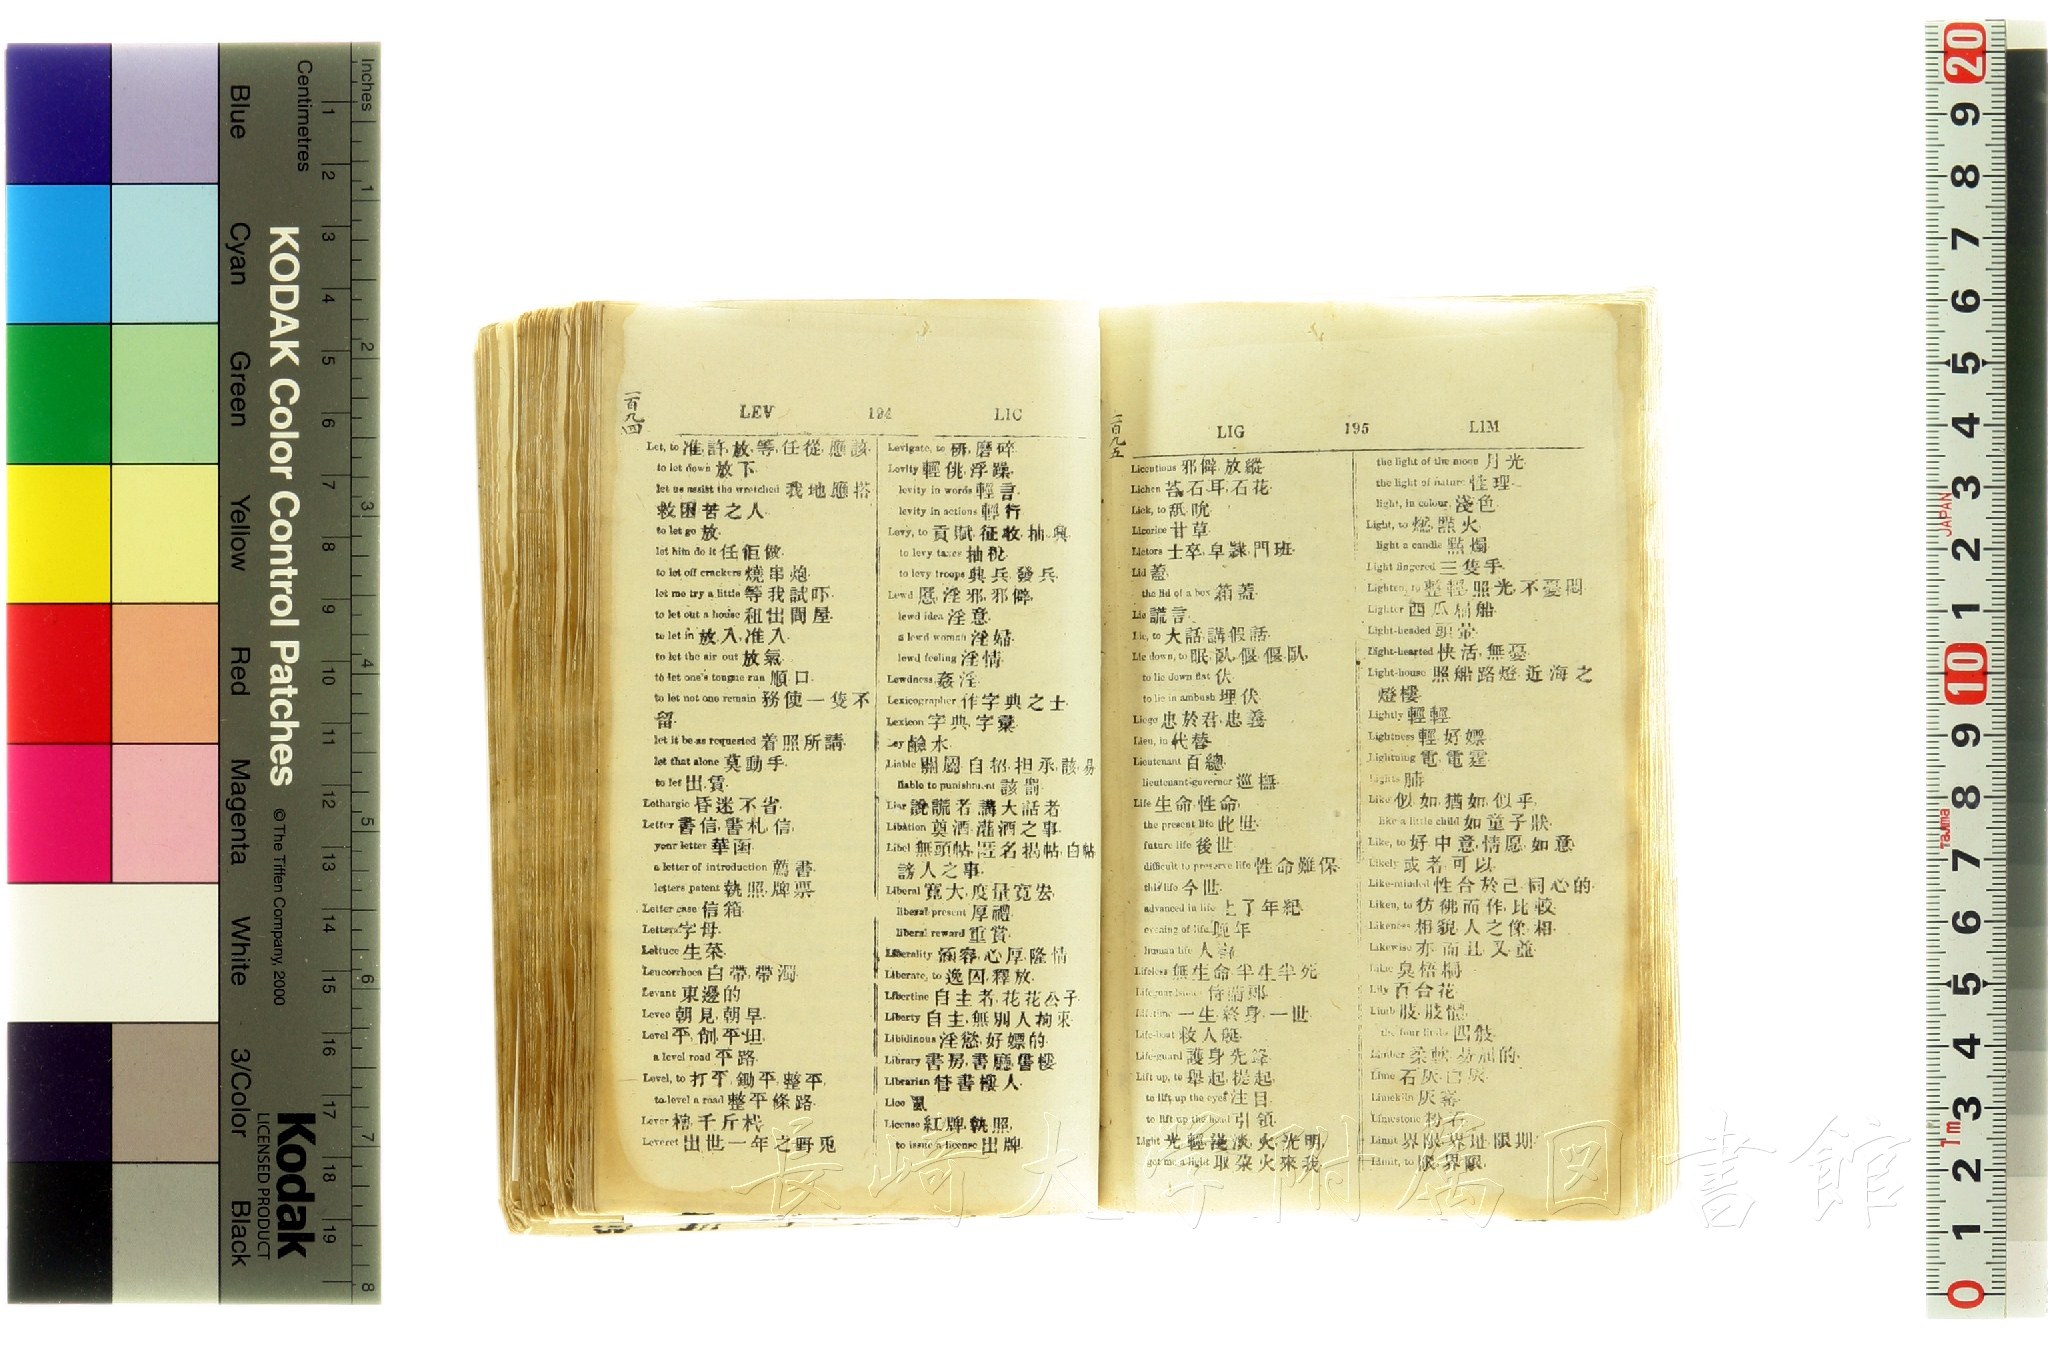 Inches
Centimetres
KODAK Color Control Patches
© The Tiffen Company, 2000
Kodak
LICENSED PRODUCT
Blue
Cyan
Green
Yellow
Red
Magenta
White
3/Color
Black
一百九四
LEV 194 LIC
Let, to 准, 許, 放, 等, 任從, 應該
to let down 放下
let us assist the wretched 我地應搭
救困苦之人
to let go 放
let him do it 任佢做
to let off crackers 燒串炮
let me try a little 等我試吓
to let out a house 租出間屋
to let in 放入, 准入
to let the air out 放氣
to let one's tongue run 順口
to let not one remain 務使一隻不
留
let it be as requested 着照所請
let that alone 莫動手
to let 出賃
Lethargic 昏迷不省
Letter 書信, 書札, 信
your letter 華函
a letter of introduction 薦書
letters patent 執照, 牌票
Letter case 信箱
Letters 字母
Lettuce 生菜
Leucorrhoea 白帶, 帶濁
Levant 東邊的
Levee 朝見, 朝早
Level 平, 刨平, 平坦
a level road 平路
Level, to 打平, 鋤平, 整平
to level a road 整平條路
Lever 千斤杙
Leveret 出世一年之野兎
Levigate, to 研, 磨碎
Levity 輕佻, 浮躁
levity in words 輕言
levity in actions 輕行
Levy, to 貢賦, 征收, 抽, 興
to levy taxes 抽稅
to levy troops 興兵, 發兵
Lewd 慝, 淫邪, 邪僻
lewd idea 淫意
a lewd woman 淫婦
lewd feeling 淫情
Lewdness 姦淫
Lexicographer 作字典之士
Lexicon 字典, 字彙
Ley 鹼水
Liable 關屬, 自招, 担承, 該, 易
liable to punishment 該罰
Liar 說謊者, 講大話者
Libation 奠酒, 灌酒之事
Libel 無頭帖, 匿名揭帖, 白帖
謗人之事
Liberal 寬大, 度量寬宏
liberal present 厚禮
liberal reward 重賞
Liberality 涵容, 心厚, 隆情
Liberate, to 逸囚, 釋放
Libertine 自主者, 花花公子
Liberty 自主, 無別人拘束
Libidinous 淫慾, 好嫖的
Library 書房, 書廳, 書樓
Librarian 管書樓人
Lice 虱
License 紅牌, 執照
to issue a license 出牌
一百九五
LIG 195 LIM
Licentious 邪僻, 放縱
Lichen 苔, 石耳, 石花
Lick, to 舐, 吮
Licorice 甘草
Lictors 士卒, 皁隸, 門班
Lid 蓋
the lid of a box 箱蓋
Lie 謊言
Lie, to 大話, 講假話
Lie down, to 眠, 臥, 偃, 偃臥
to lie down flat 伏
to lie in ambush 埋伏
Liege 忠於君, 忠義
Lieu, in 代替
Lieutenant 百總
lieutenant-governor 巡撫
Life 生命, 性命
the present life 此世
future life 後世
difficult to preserve life 性命難保
this life 今世
advanced in life 上了年紀
evening of life 晚年
human life 人壽
Lifeless 無生命, 半生半死
侍衛郎
Life-time 一生, 終身, 一世
Life-boat 救人艇
Life-guard 護身先鋒
Lift up, to 舉起, 提起
to lift up the eyes 注目
to lift up the head 引領
Light 光, 輕, 淺淡, 火, 光明
get me a light 取菉火來我
the light of the moon 月光
the light of nature 性理
light, in colour 淺色
Light, to 燃, 點火
light a candle 點燭
Light fingered 三隻手
Lighten, to 整輕, 照光, 不憂悶
Lighter 西瓜扁船
Light-headed 頭暈
Light-hearted 快活, 無憂
Light-house 照船路燈, 近海之
燈樓
Lightly 輕輕
Lightness 輕, 好嫖
Lightning 電, 電霆
Lights 肺
Like 似, 如, 猶如, 似乎
like a little child 如童子狀
Like, to 好, 中意, 情愿, 如意
Likely 或者, 可以
Like-minded 性合於己, 同心的
Liken, to 彷彿而作, 比較
Likeness 相貌, 人之像, 相
Likewise 亦, 而且, 又, 並
臭梧桐
Lily 百合花
Limb 肢, 肢體
the four limbs 四肢
Limber 柔軟
Lime 石灰, 白灰
Limekiln 灰窰
Limestone 粉石
Limit 界限, 界址, 限期
Limit, to 限, 界限
長崎大学附属図書館
JAPAN
Tajima
1m